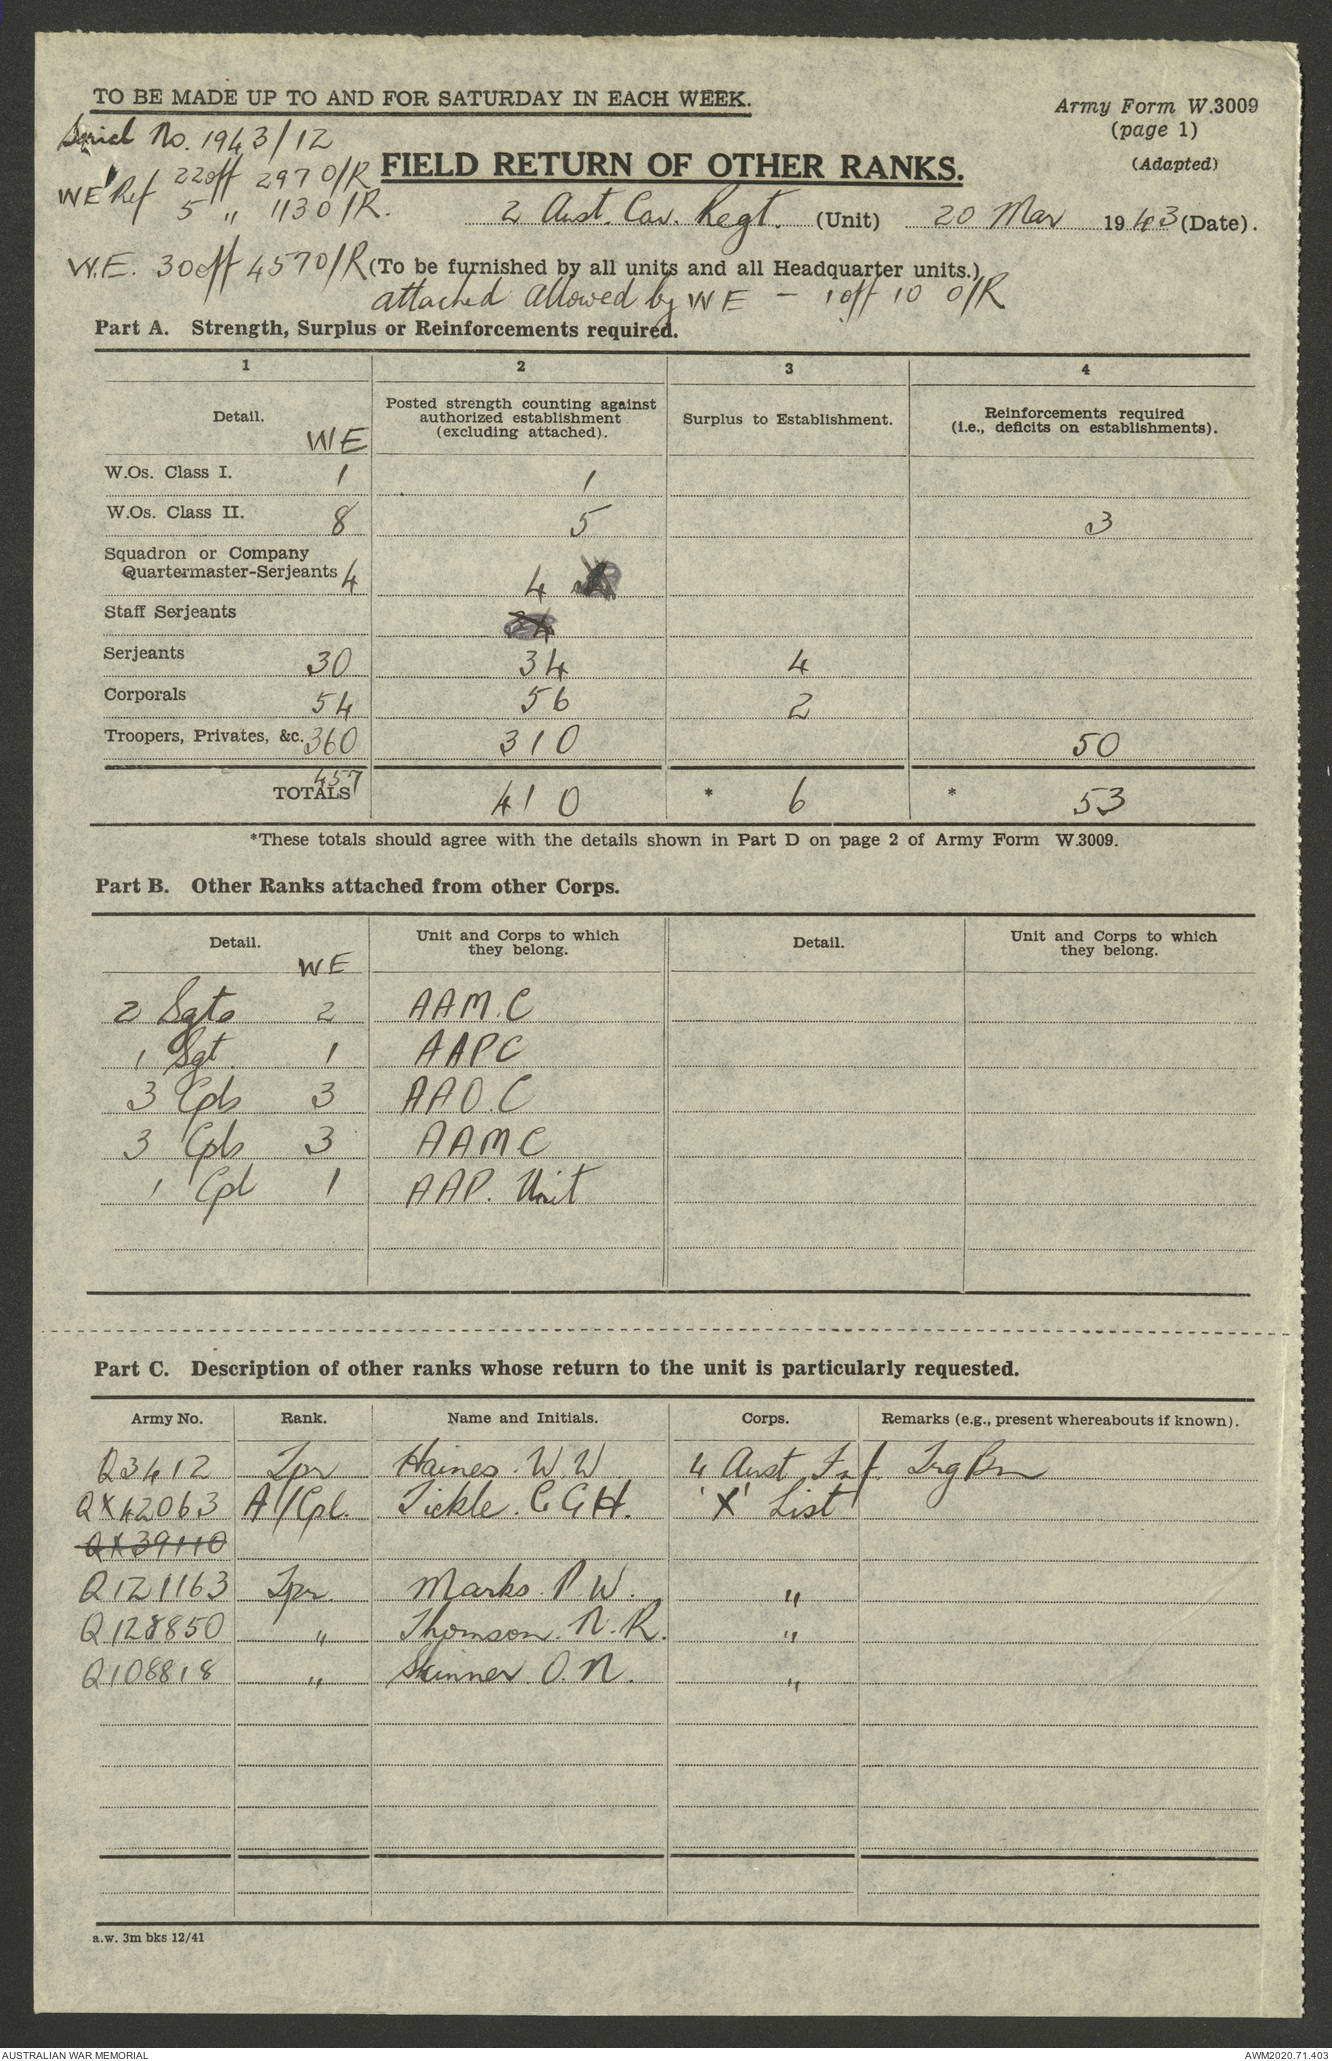 TO BE MADE UP TO AND FOR SATURDAY IN EACH WEEK.
Army Form W.3009
(page 1)
(Adapted)
Serial No. 1943/12
WE Ref 22off 297 O/R
5 " 113 O/R.
FIELD RETURN OF OTHER RANKS.
2 Aust. Cav. Regt. (Unit) 20 Mar 1943 (Date).
W.E. 30off 457 O/R (To be furnished by all units and all Headquarter units.)
attached allowed by WE - 1 off 10 O/R
Part A. Strength, Surplus or Reinforcements required.
1 2 3 4
Detail. WE Posted strength counting against authorized establishment (excluding attached). Surplus to Establishment. Reinforcements required (i.e., deficits on establishments).
W.Os. Class I. 1 1
W.Os. Class II. 8 5 3
Squadron or Company
Quartermaster-Serjeants 4 4
Staff Serjeants
Serjeants 30 34 4
Corporals 54 56 2
Troopers, Privates, &c. 360 310 50
457
TOTALS 410 * 6 * 53
*These totals should agree with the details shown in Part D on page 2 of Army Form W.3009.
Part B. Other Ranks attached from other Corps.
Detail. WE Unit and Corps to which they belong. Detail. Unit and Corps to which they belong.
2 Sgts 2 AAM.C
1 Sgt. 1 AAPC
3 Cpls 3 AAO.C
3 Cpls 3 AAMC
1 Cpl 1 AAP. Unit
Part C. Description of other ranks whose return to the unit is particularly requested.
Army No. Rank. Name and Initials. Corps. Remarks (e.g., present whereabouts if known).
Q3412 Tpr Haines. W.W 4 Aust Inf. Trg Bn
QX42063 A/Cpl. Tickle. C G H. 'X' List
QX39110
Q121163 Tpr. Marks. P W. "
Q128850 " Thomson. N. R. "
Q108818 " Skinner. O. N. "
a.w. 3m bks 12/41
AUSTRALIAN WAR MEMORIAL
AWM2020.71.403